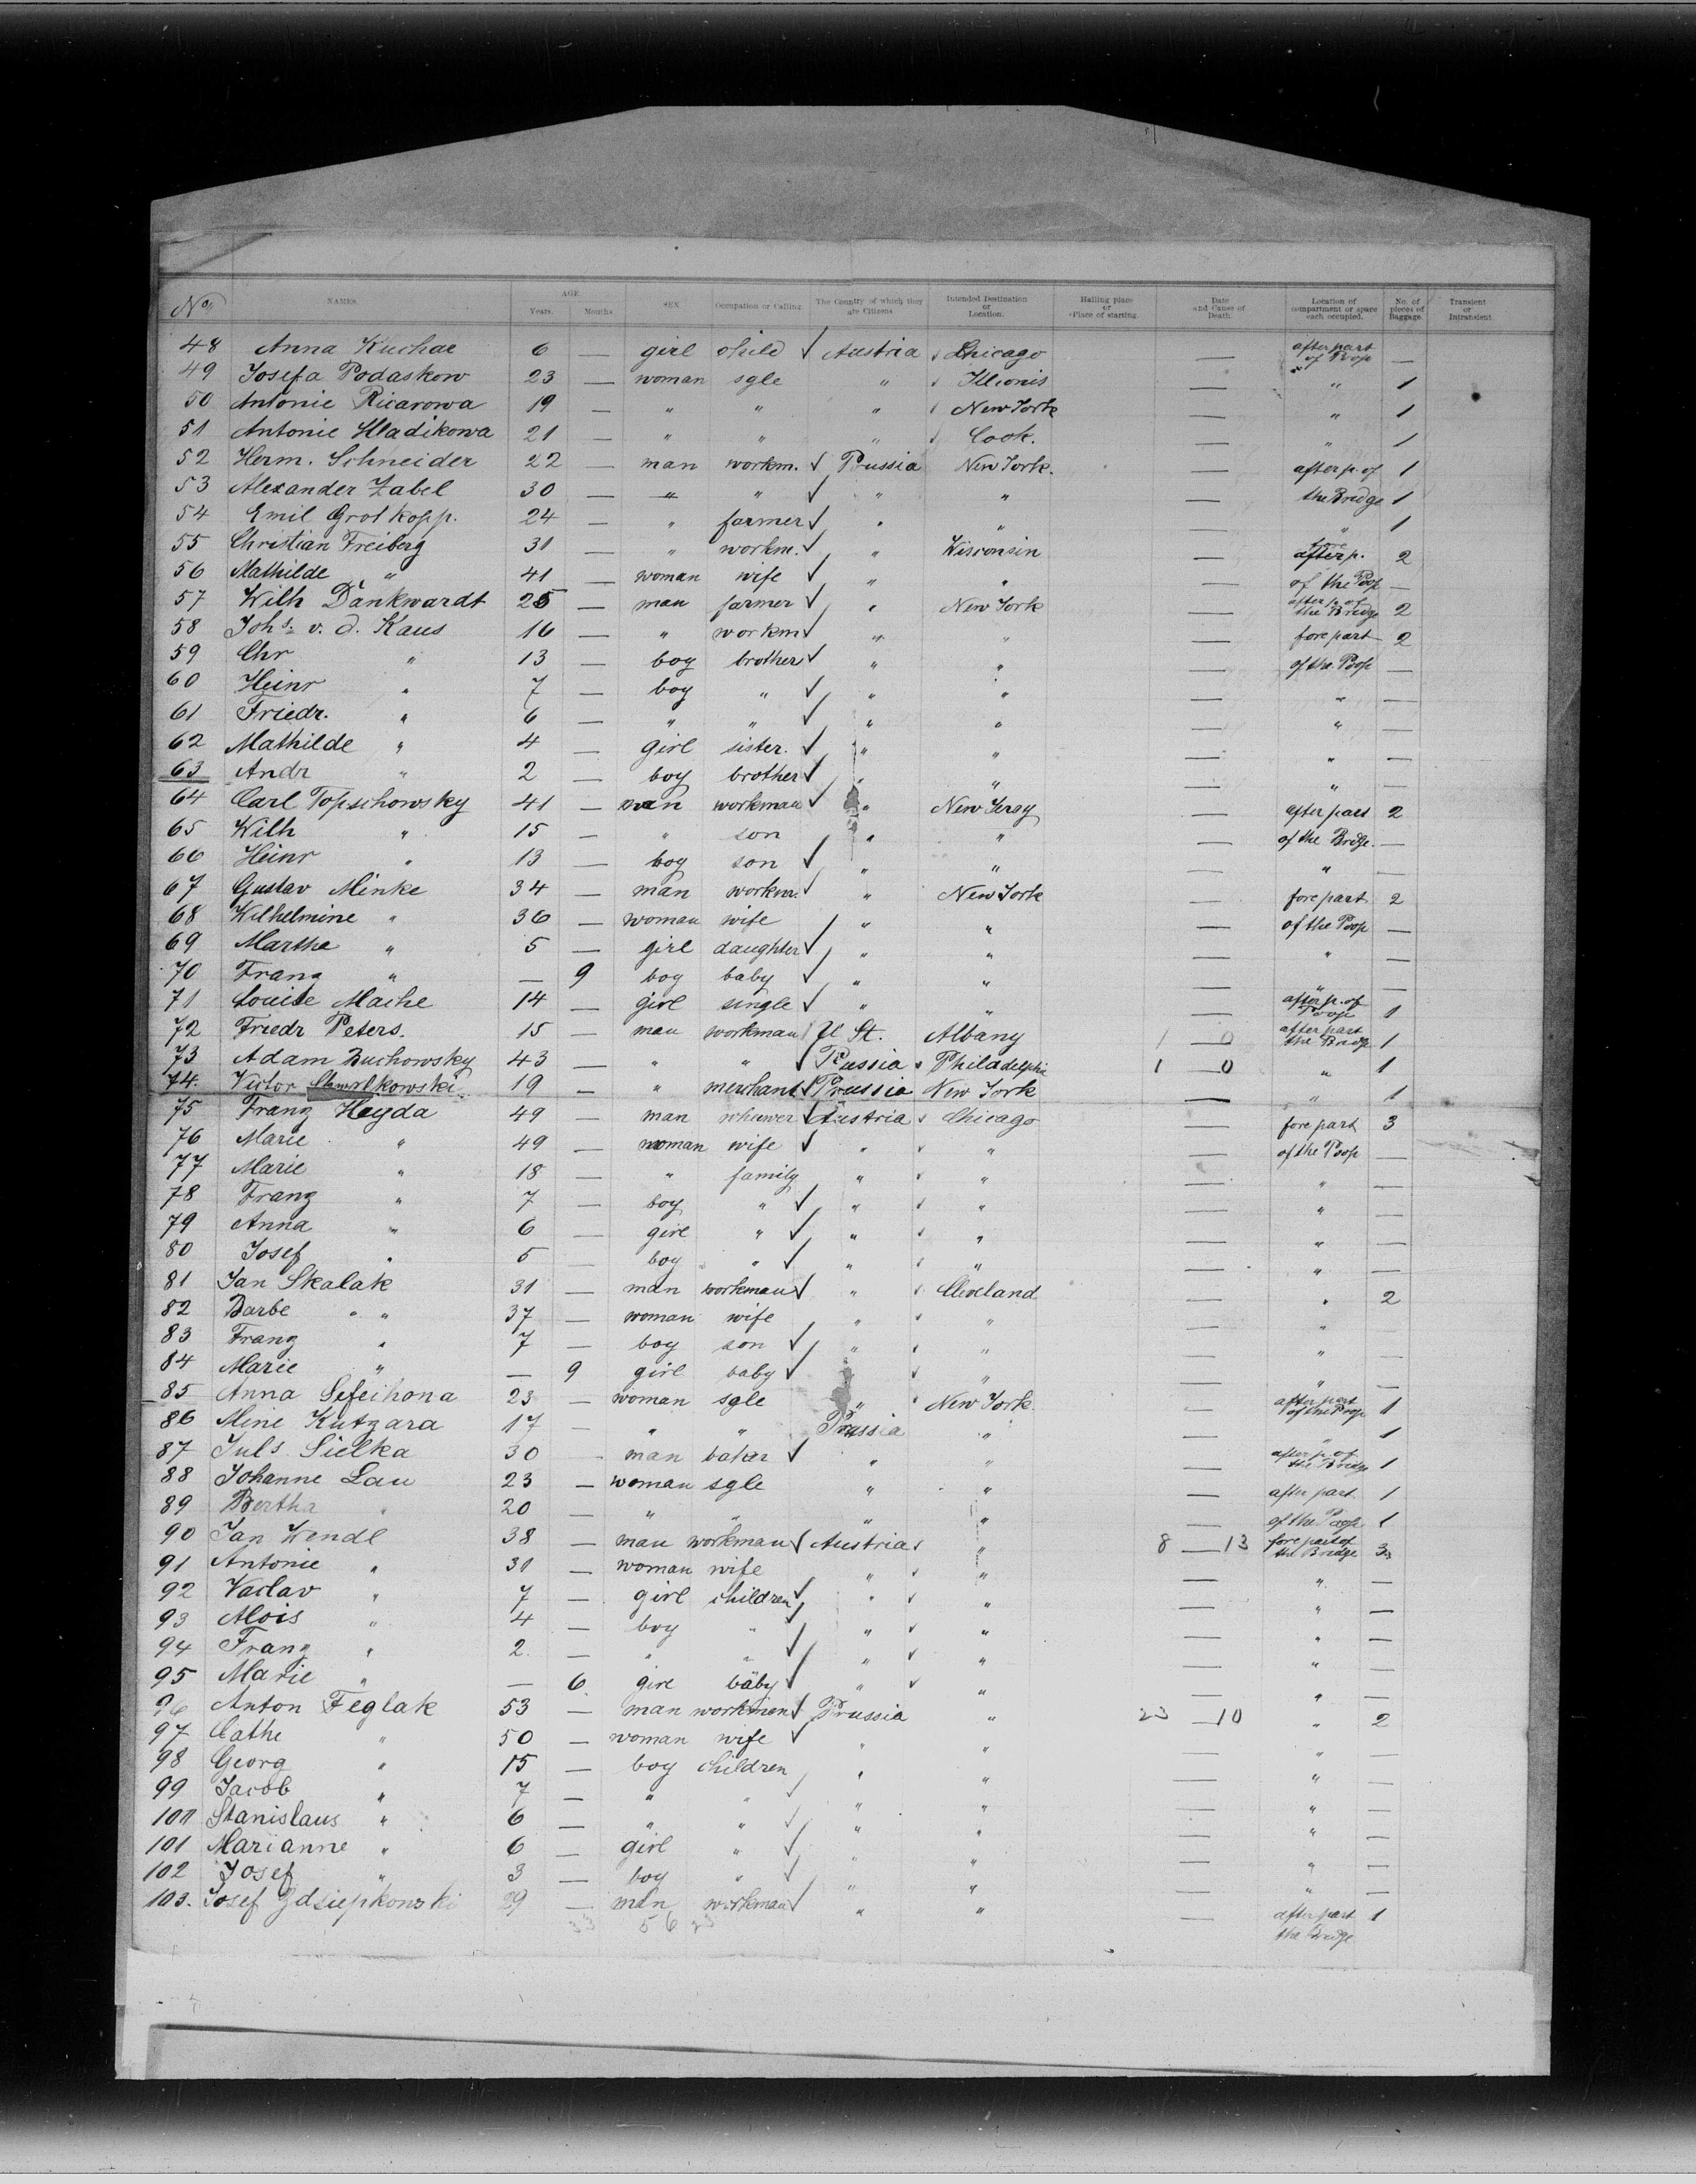 No. NAMES. AGE Years. Months. SEX Occupation or Calling. The Country of which they are Citizens Intended Destination or Location. Hailing place or Place of starting. Date and Cause of Death. Location of compartment or space each occupied. No. of pieces of Baggage. Transient or Intransient.
48 Anna Kuchar 6 — girl child ✓ Austria ✓ Chicago — after part of Poop —
49 Josefa Podaskow 23 — woman sgle " ✓ Illionis — " 1
50 Antonie Ricarowa 19 — " " " ✓ New York — " 1
51 Antonie Hladikowa 21 — " " " ✓ Cook. — " 1
52 Herm. Schneider 22 — man workm. ✓ Prussia New York. — after p. of 1
53 Alexander Zabel 30 — " " ✓ " " — the Bridge 1
54 Emil Grotkopp. 24 — " farmer ✓ " " — " 1
55 Christian Freiberg 31 — " workm. ✓ " Wisconsin — fore after p. 2
56 Mathilde " 41 — woman wife ✓ " " — of the Poop —
57 Wilh Dankwardt 25 — man farmer ✓ " New York — after p. of the Bridge 2
58 Johs. v. d. Kaus 16 — " workm ✓ " " — fore part 2
59 Chr " 13 — boy brother ✓ " " — of the Poop —
60 Heinr " 7 — boy " ✓ " " — " —
61 Friedr. " 6 — " " ✓ " " — " —
62 Mathilde " 4 — girl sister. ✓ " " — " —
63 Andr " 2 — boy brother ✓ " " — " —
64 Carl Topschowsky 41 — man workman ✓ " New Jersy — after part 2
65 Wilh " 15 — " son " " — of the Bridge. —
66 Heinr " 13 — boy son ✓ " " — " —
67 Gustav Minke 34 — man workm. ✓ " New York — fore part 2
68 Wilhelmine " 36 — woman wife " " — of the Poop —
69 Martha " 5 — girl daughter ✓ " " — " —
70 Franz " — 9 boy baby ✓ " " — " —
71 Louise Mache 14 — girl single ✓ " " — after p. of Poop 1
72 Friedr Peters. 15 — man workman U St. Albany 1 — 0 after part the Bridge 1
73 Adam Zuchowsky 43 — " " ✓ Russia ✓ Philadelphia 1 — 0 " 1
74. Victor 19 — " merchant ✓ Prussia New York — " 1
75 Franz Hayda 49 — man ✓ Austria ✓ Chicago — fore part 3
76 Marie " 49 — woman wife ✓ " ✓ " — of the Poop —
77 Marie " 18 — " family " ✓ " — " —
78 Franz " 7 — boy " ✓ " ✓ " — " —
79 Anna " 6 — girl " ✓ " ✓ " — " —
80 Josef " 5 — boy " ✓ " ✓ " — " —
81 Jan Skalak 31 — man workman ✓ " ✓ Cleveland — " 2
82 Barbe " 37 — woman wife " ✓ " — " —
83 Franz " 7 — boy son ✓ " ✓ " — " —
84 Marie " — 9 girl baby ✓ " ✓ " — " —
85 Anna Sefeihona 23 — woman sgle " ✓ New York. — after part of the Poop 1
86 Mine Kutzara 17 — " " Prussia " — " 1
87 Juls. Sielka 30 — man baker ✓ " " — after p. of the Bridge 1
88 Johanne Lau 23 — woman sgle " " — after part. 1
89 Bertha " 20 — " " " " — of the Poop 1
90 Jan Wendl 38 — man workman ✓ Austria ✓ " 8 — 13 fore part of the Bridge 3
91 Antonie " 31 — woman wife " ✓ " — " —
92 Vaclav " 7 — girl children ✓ " ✓ " — " —
93 Alois " 4 — boy " " ✓ " — " —
94 Franz " 2 — " " ✓ " ✓ " — " —
95 Marie " — 6 girl baby ✓ " ✓ " — " —
96 Anton Feglak 53 — man workman ✓ Prussia " 23 — 10 " 2
97 Cathe " 50 — woman wife ✓ " " — " —
98 Georg " 15 — boy children " " — " —
99 Jacob " 7 — " " " " — " —
100 Stanislaus " 6 — " " ✓ " " — " —
101 Marianne " 6 — girl " ✓ " " — " —
102 Josef " 3 — boy " ✓ " " — " —
103. Josef Zdziepkowski 29 — man workman ✓ " " — after part 1
the Bridge
33 56 23